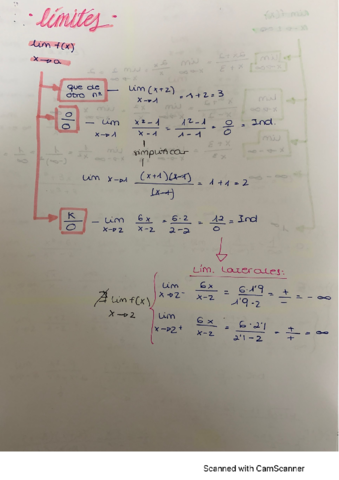 · límites ·
lim f(x)
x→a
que dé otro nº — lim (x+2) = 1+2 = 3
x→1
0/0 — lim x→1 x²-1/x-1 = 1²-1/1-1 = 0/0 = Ind.
simplificar
lim x→1 (x+1)(x-1)/(x-1) = 1+1 = 2
K/0 — lim x→2 6x/x-2 = 6·2/2-2 = 12/0 = Ind
Lim. Laterales:
∄ lim f(x)
x→2
lim x→2⁻ 6x/x-2 = 6·1'9/1'9-2 = +/- = -∞
lim x→2⁺ 6x/x-2 = 6·2'1/2'1-2 = +/+ = ∞
Scanned with CamScanner